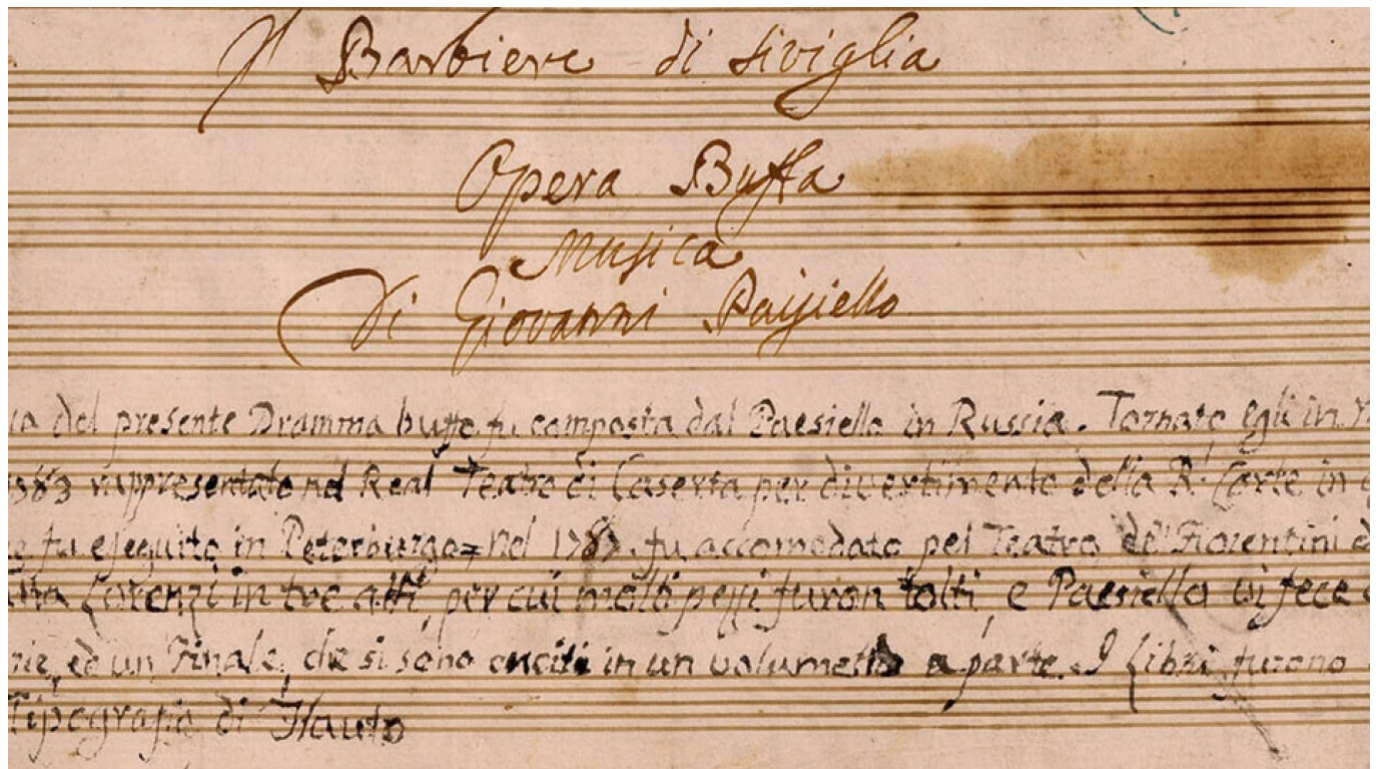 Il Barbiere di Siviglia
Opera Buffa
Musica
Di Giovanni Paisiello
del presente Dramma buffo fu composta dal Paesiello in Russia. Tornato egli in
rappresentato nel Real Teatro di Caserta per divertimento della Rl. Corte in
fu eseguito in Peterburgo = Nel 1787. fu accomodato pel Teatro de' Fiorentini
Lorenzi in tre atti, per cui molti pezzi furon tolti, e Paesiello vi fece
ed un Finale, che si sono in un volumetto a parte. I Libri furono
Tipografia di Flauto